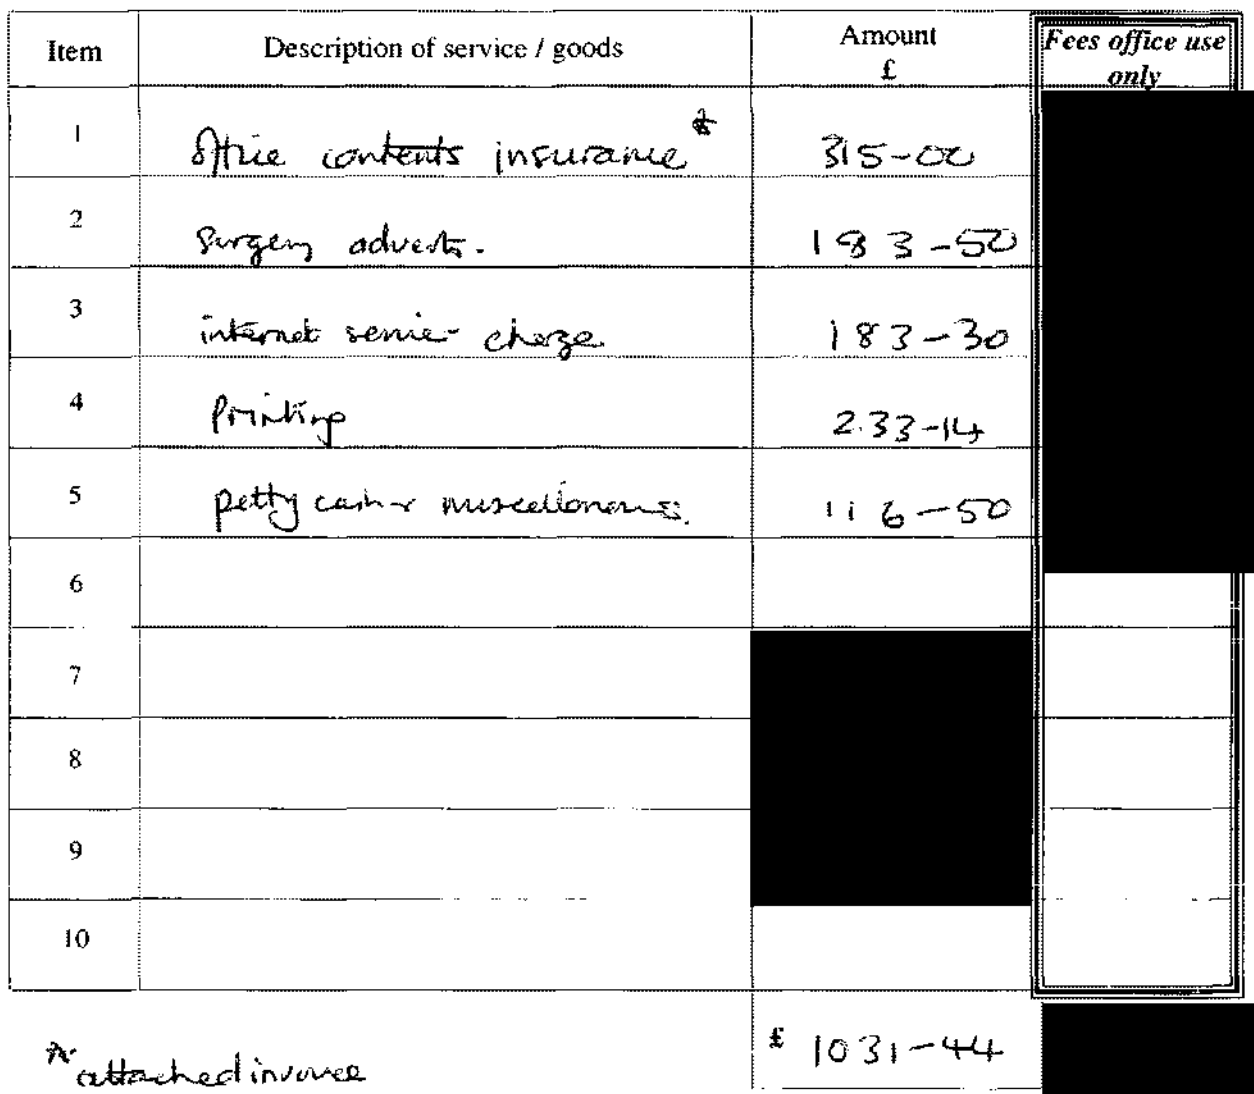 Item Description of service / goods Amount £ Fees office use only
1 Office contents insurance * 315-00
2 Surgery adverts. 183-50
3 internet service charge 183-30
4 Printing 233-14
5 petty cash + miscellaneous. 116-50
6
7
8
9
10
£ 1031-44
* attached invoice